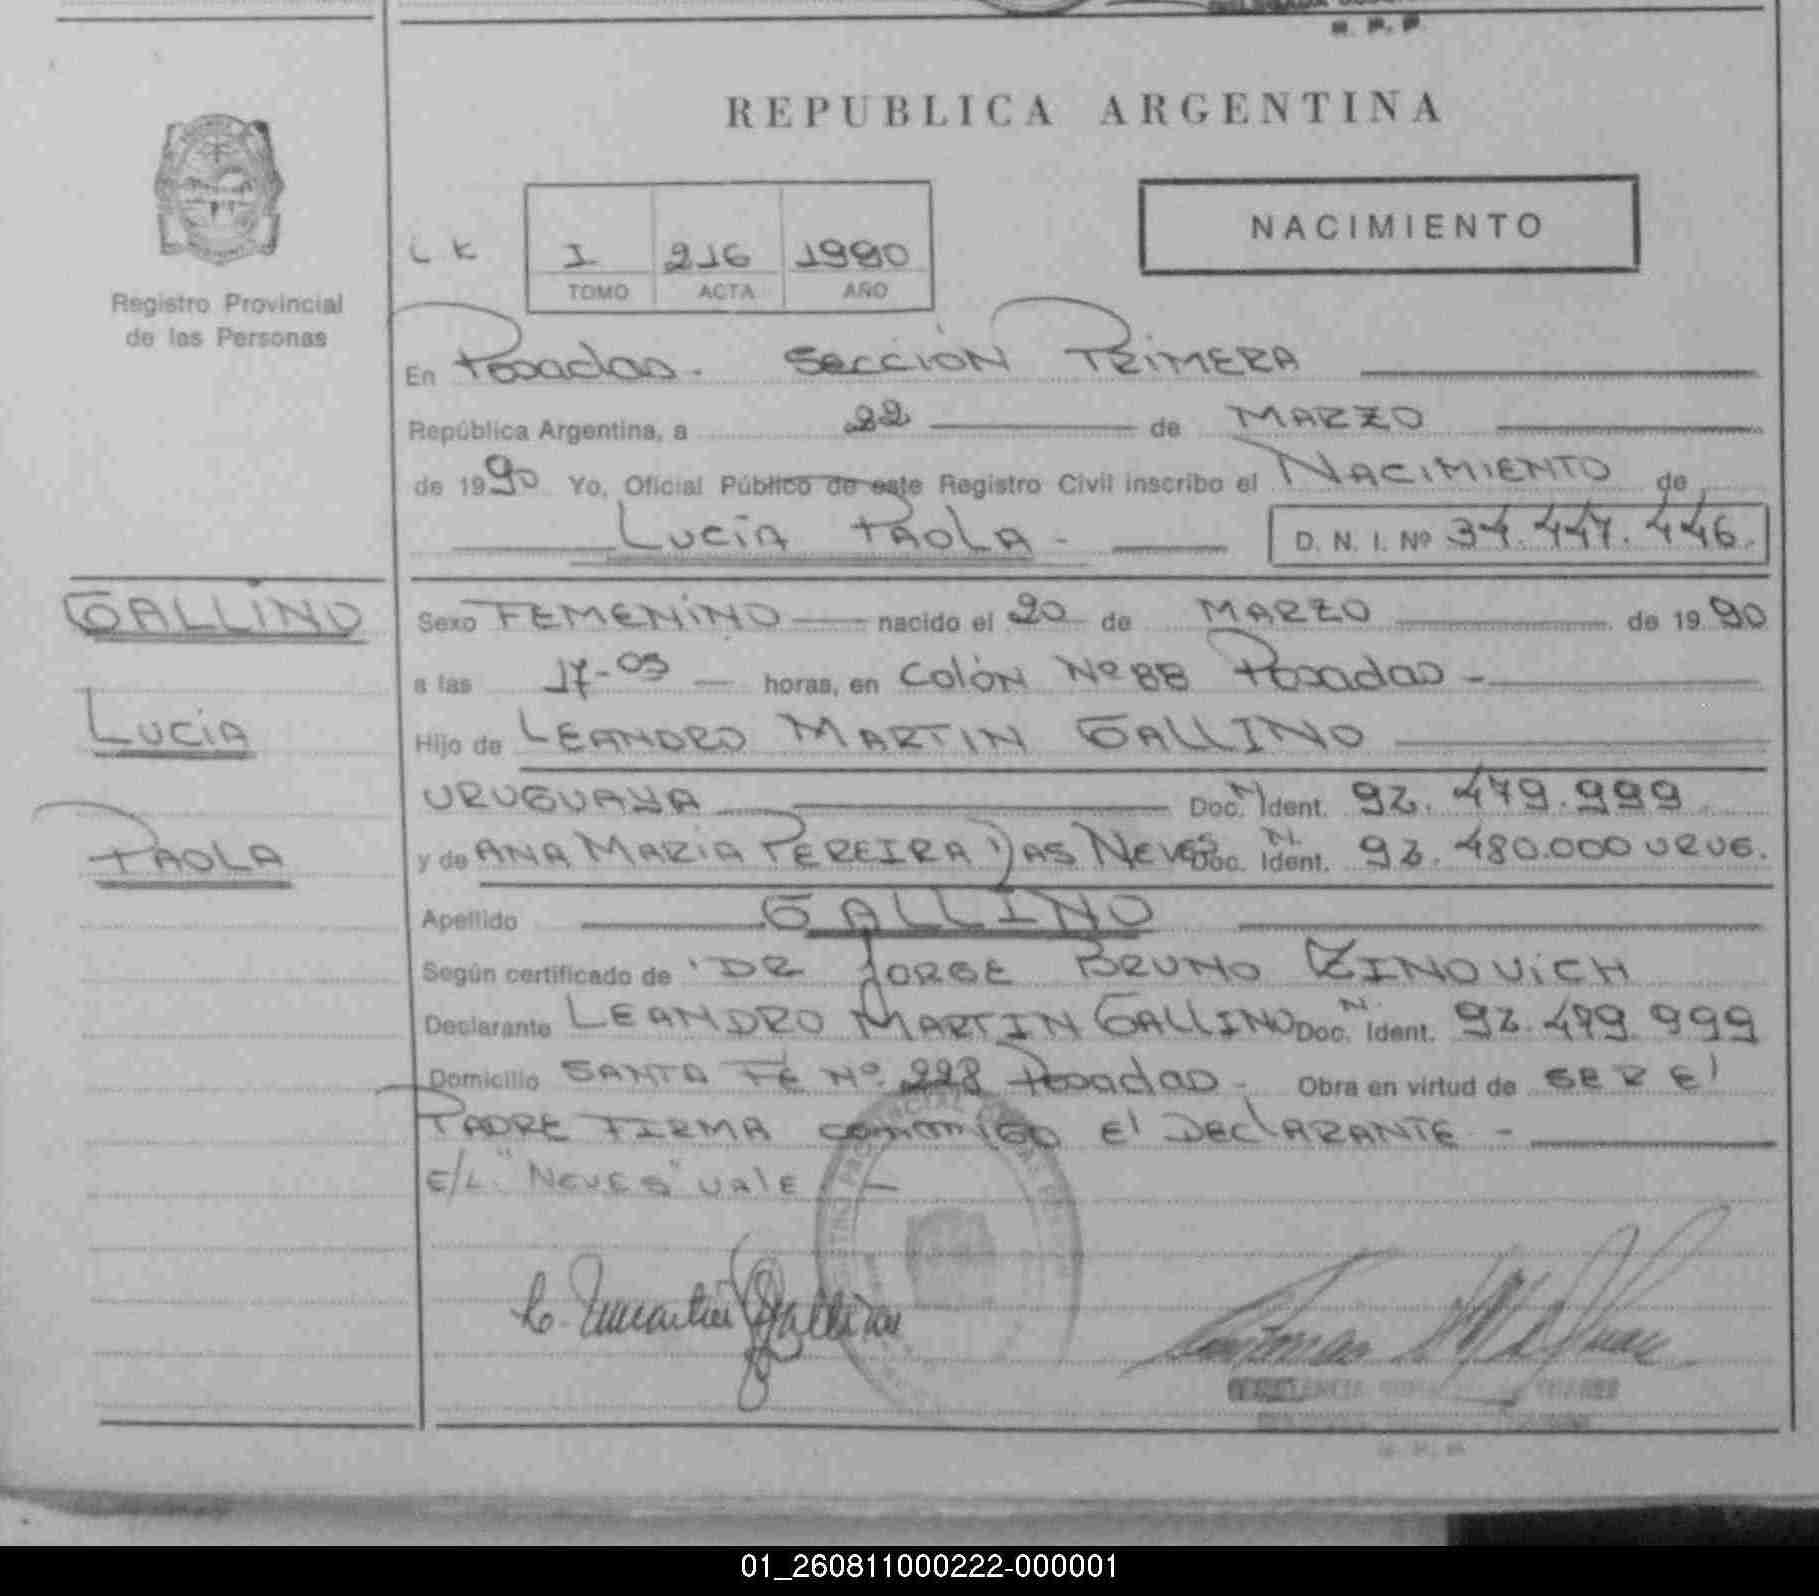 REPUBLICA ARGENTINA
NACIMIENTO
Registro Provincial
de las Personas
L K
I 216 1990
TOMO ACTA AÑO
En Posadas. Sección Primera
República Argentina, a 22 de MARZO
de 1990 Yo, Oficial Público de este Registro Civil inscribo el NACIMIENTO de
Lucía PAOLA - D. N. I. Nº 34.447.446.
GALLINO
Lucía
PAOLA
Sexo FEMENINO nacido el 20 de MARZO de 1990
a las 17-05 horas, en Colón Nº 88 Posadas -
Hijo de LEANDRO MARTIN GALLINO
URUGUAYA Doc. N. Ident. 92.479.999
y de ANA MARIA PEREIRA DAS NEVES Doc. N. Ident. 92.480.000 URUG.
Apellido GALLINO
Según certificado de DR JORGE BRUNO ZINOVICH
Declarante LEANDRO MARTIN GALLINO Doc. N. Ident. 92.479.999
Domicilio SANTA FÉ Nº 228 Posadas - Obra en virtud de SER El
PADRE FIRMA conmigo El DEClARANTE -
E/L. "NEVES" VAlE -
R. P. P
01_260811000222-000001